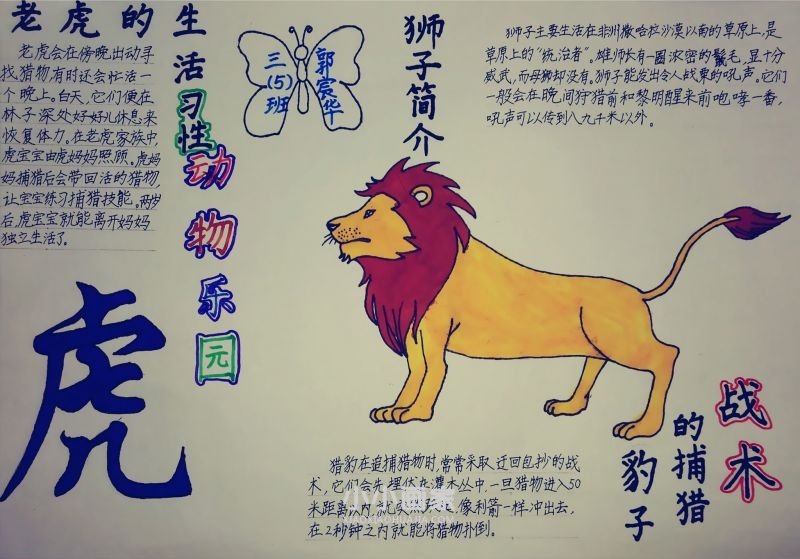 老虎的生活习性
老虎会在傍晚出动寻
找猎物,有时还会忙活一
个晚上。白天,它们便在
林子深处好好儿休息来
恢复体力。在老虎家族中,
虎宝宝由虎妈妈照顾。虎妈
妈捕猎后会带回活的猎物,
让宝宝练习捕猎技能。两岁
后虎宝宝就能离开妈妈
独立生活了。
三(5)班
郭宸华
动物乐园
虎
狮子简介
狮子主要生活在非洲撒哈拉沙漠以南的草原上,是
草原上的“统治者”。雄狮长有一圈浓密的鬣毛,显十分
威武,而母狮却没有。狮子能发出令人战栗的吼声。它们
一般会在晚间狩猎前和黎明醒来前咆哮一番,
吼声可以传到八九千米以外。
豹子的捕猎战术
猎豹在追捕猎物时,常常采取迂回包抄的战
术,它们会先埋伏在灌木丛中,一旦猎物进入50
米距离以内,就像利箭一样冲出去,
在2秒钟之内就能将猎物扑倒。
小小画家